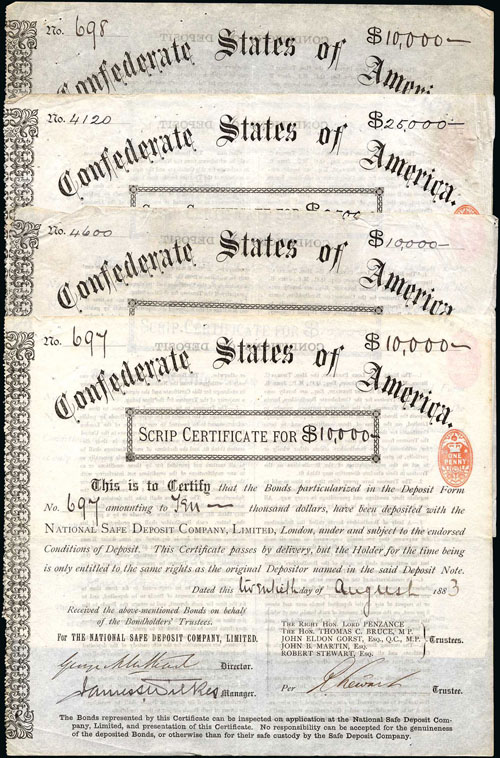 No. 698 $10,000
Confederate States of Ameri
No. 4120 $25,000
Confederate States of America.
No. 4600 $10,000
Confederate States of America
No. 697 $10,000
Confederate States of America.
SCRIP CERTIFICATE FOR $10,000
ONE PENNY
This is to Certify that the Bonds particularized in the Deposit Form
No. 697 amounting to Ten thousand dollars, have been deposited with the
NATIONAL SAFE DEPOSIT COMPANY, LIMITED, London, under and subject to the endorsed
Conditions of Deposit. This Certificate passes by delivery, but the Holder for the time being
is only entitled to the same rights as the original Depositor named in the said Deposit Note.
Dated this twentieth day of August 1883
Received the above-mentioned Bonds on behalf
of the Bondholders' Trustees.
For THE NATIONAL SAFE DEPOSIT COMPANY, LIMITED.
THE RIGHT HON. LORD PENZANCE
THE HON. THOMAS C. BRUCE, M.P.
JOHN ELDON GORST, ESQ., Q.C., M.P.
JOHN B. MARTIN, ESQ.
ROBERT STEWART, ESQ.
Trustees.
Director.
James Wilkes Manager.
Per Stewart Trustee.
The Bonds represented by this Certificate can be inspected on application at the National Safe Deposit Com-
pany, Limited, and presentation of this Certificate. No responsibility can be accepted for the genuineness
of the deposited Bonds, or otherwise than for their safe custody by the Safe Deposit Company.